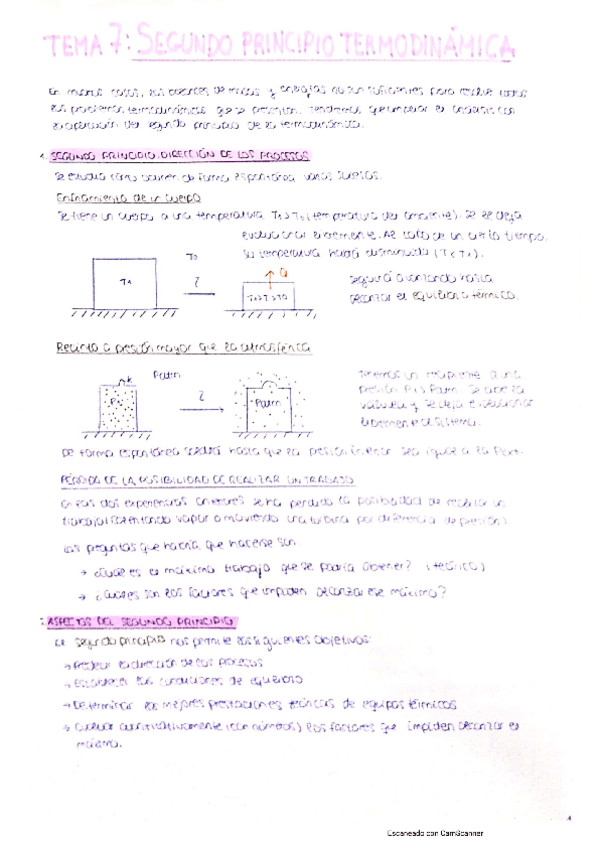 TEMA 7: SEGUNDO PRINCIPIO TERMODINÁMICA
En muchos casos, los balances de masas y energías no son suficientes para resolver todos
los problemas termodinámicos que se presentan. Tendremos que ampliar el análisis con
la aplicación del segundo principio de la termodinámica.
1. SEGUNDO PRINCIPIO: DIRECCIÓN DE LOS PROCESOS
Se estudia cómo ocurren de forma espontánea varios sucesos.
Enfriamiento de un cuerpo
Se tiene un cuerpo a una temperatura T1>T0 (temperatura del ambiente). Si se deja
evolucionar libremente. Al cabo de un cierto tiempo,
su temperatura habrá disminuido (T<T1).
T0
Q
T1
T1>T>T0
seguirá avanzando hasta
alcanzar el equilibrio térmico.
Recinto a presión mayor que la atmosférica
Patm
P1
Patm
Tenemos un recipiente a una
presión P1>Patm. Se abre la
válvula y se deja evolucionar
libremente el sistema.
De forma espontánea saldrá hasta que la presión interior sea igual a la Pext.
PÉRDIDA DE LA POSIBILIDAD DE REALIZAR UN TRABAJO
En las dos experiencias anteriores se ha perdido la posibilidad de realizar un
trabajo (calentando vapor o moviendo una turbina por diferencia de presión)
Las preguntas que habría que hacerse son:
→ ¿Cuál es el máximo trabajo que se podría obtener? (teórico)
→ ¿Cuáles son los factores que impiden alcanzar ese máximo?
2. ASPECTOS DEL SEGUNDO PRINCIPIO
El segundo principio nos permite los siguientes objetivos:
→ Predecir la dirección de los procesos
→ Establecer las condiciones de equilibrio
→ Determinar las mejores prestaciones teóricas de equipos térmicos
→ Evaluar cuantitativamente (con números) los factores que impiden alcanzar el
máximo.
Escaneado con CamScanner